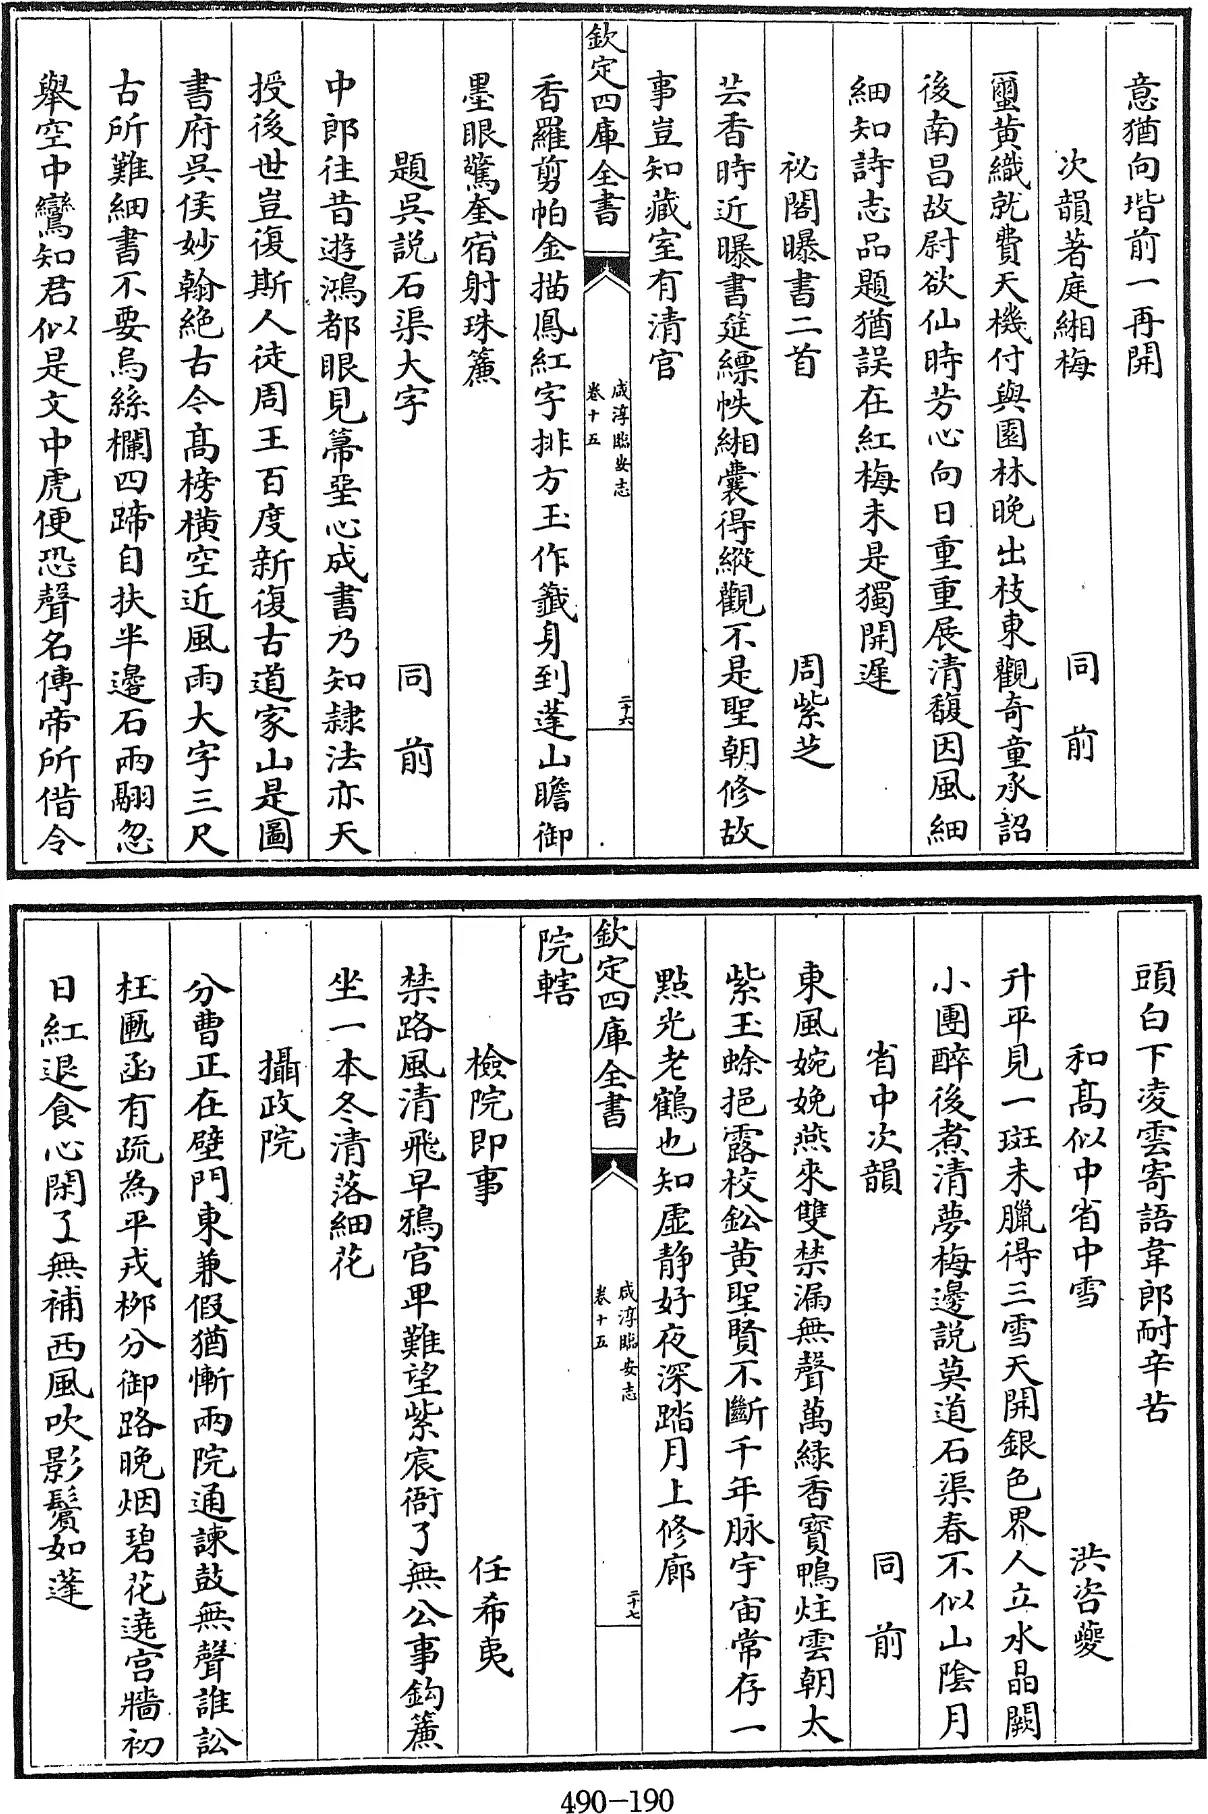 意猶向堦前一再開
次韻著庭緗梅 同前
蠒黃織就費天機付與園林晚出枝東觀奇童承詔
後南昌故尉欲仙時芳心向日重重展清馥因風細
細知詩志品題猶誤在紅梅未是獨開遲
祕閣曝書二首 周紫芝
芸香時近曝書筵縹帙緗囊得縱觀不是聖朝修故
事豈知藏室有清官
欽定四庫全書
咸淳臨安志
卷十五
二十六
香羅剪帕金描鳳紅字排方玉作籤身到蓬山瞻御
墨眼驚奎宿射珠簾
題吳説石渠大字 同前
中郎往昔遊鴻都眼見箒堊心成書乃知隷法亦天
授後世豈復斯人徒周王百度新復古道家山是圖
書府吳侯妙翰絶古今髙榜橫空近風雨大字三尺
古所難細書不要烏絲欄四蹄自扶半邊石兩翮忽
舉空中鸞知君似是文中虎便恐聲名傳帝所偕令
頭白下凌雲寄語韋郎耐辛苦
和髙似中省中雪 洪咨夔
升平見一斑未臘得三雪天開銀色界人立水晶闕
小團醉後煮清夢梅邊説莫道石渠春不似山陰月
省中次韻 同前
東風婉娩燕來雙禁漏無聲萬緑香寳鴨炷雲朝太
紫玉蜍挹露校鈆黃聖賢不斷千年脉宇宙常存一
點光老鶴也知虛静好夜深踏月上修廊
欽定四庫全書
咸淳臨安志
卷十五
二十七
院轄
檢院即事 任希夷
禁路風清飛早鴉官卑難望紫宸衙了無公事鈎簾
坐一本冬清落細花
攝政院
分曹正在壁門東兼假猶慚兩院通諫鼓無聲誰訟
枉匭函有疏為平戎栁分御路晚烟碧花遶宫牆初
日紅退食心閑了無補西風吹影鬢如蓬
490-190